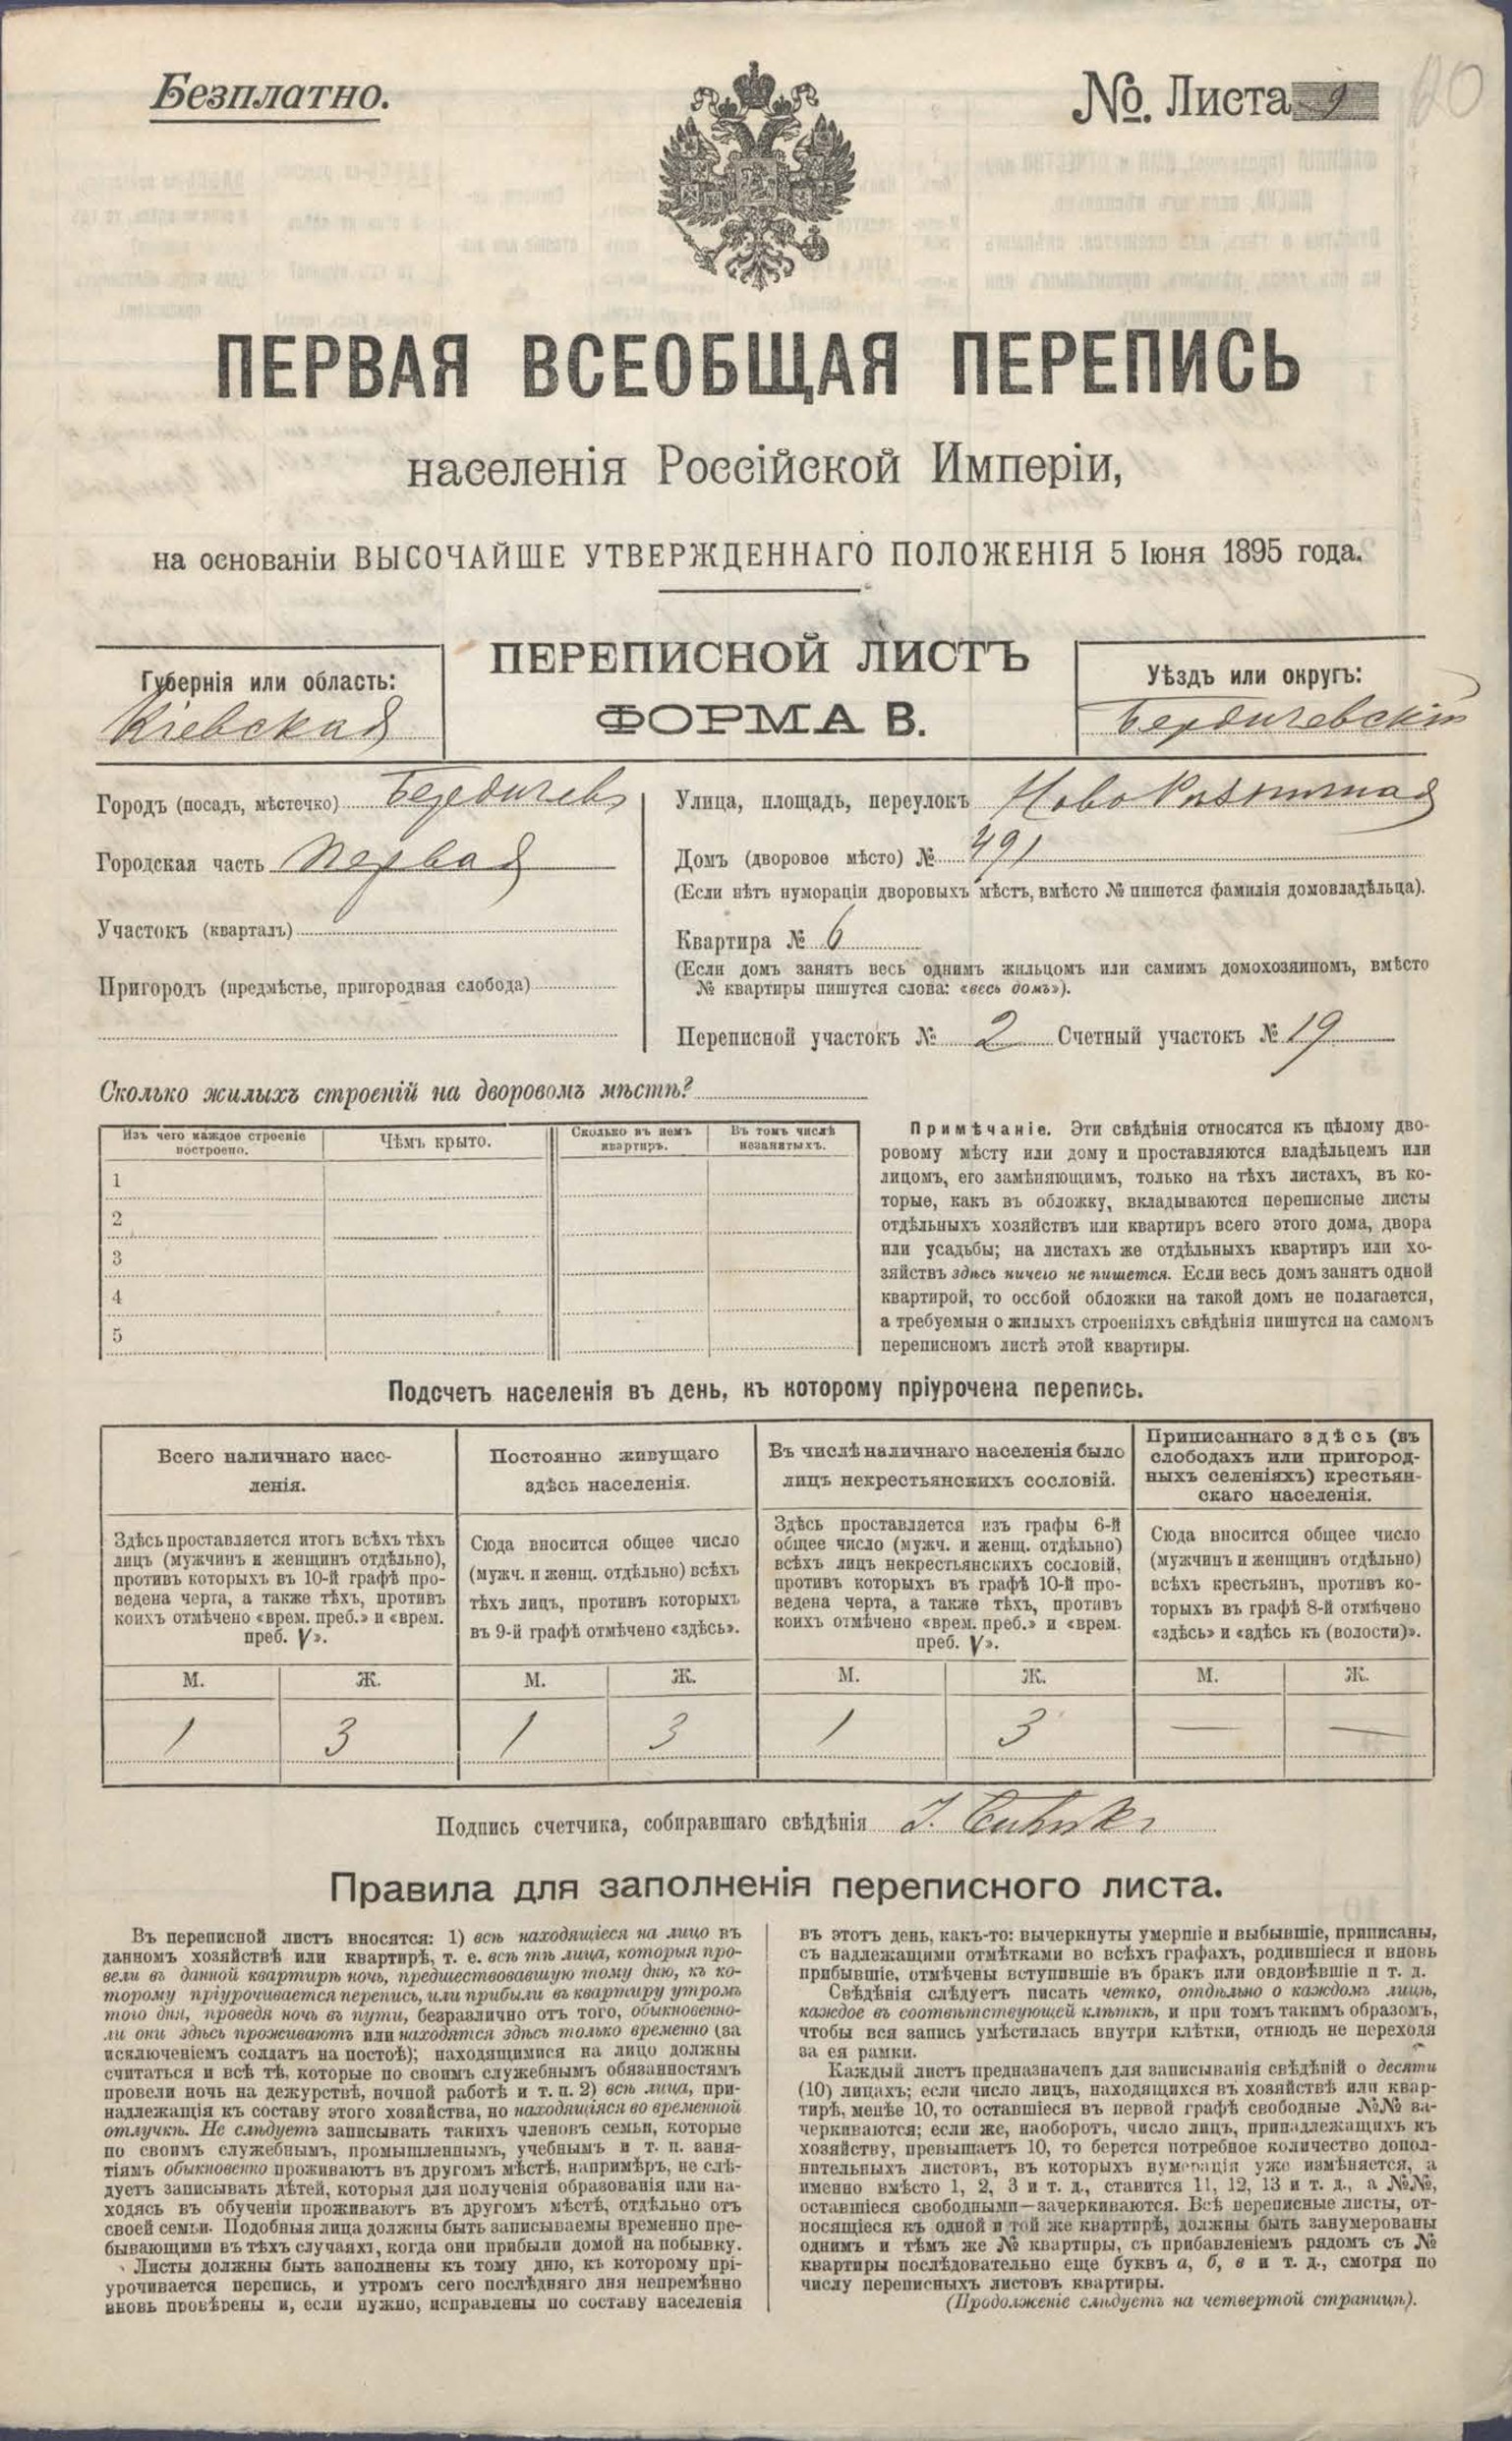 Безплатно.
№. Листа 9
ПЕРВАЯ ВСЕОБЩАЯ ПЕРЕПИСЬ
населенія Россійской Имперіи,
на основаніи ВЫСОЧАЙШЕ УТВЕРЖДЕННАГО ПОЛОЖЕНІЯ 5 Іюня 1895 года.
ПЕРЕПИСНОЙ ЛИСТЪ
ФОРМА В.
Губернія или область:
Кіевская
Уѣздъ или округъ:
Бердичевскій
Городъ (посадъ, мѣстечко) Бердичевъ
Городская часть Первая
Участокъ (кварталъ)
Пригородъ (предмѣстье, пригородная слобода)
Улица, площадь, переулокъ Ново
Домъ (дворовое мѣсто) № 491
(Если нѣтъ нумораціи дворовыхъ мѣстъ, вмѣсто № пишется фамилія домовладѣльца).
Квартира № 6
(Если домъ занятъ весь однимъ жильцомъ или самимъ домохозяиномъ, вмѣсто
№ квартиры пишутся слова: «весь домъ»).
Переписной участокъ № 2 Счетный участокъ № 19
Сколько жилыхъ строеній на дворовомъ мѣстѣ?
Изъ чего каждое строеніе
построено.
Чѣмъ крыто.
Сколько въ немъ
квартиръ.
Въ томъ числѣ
незанятыхъ.
1
2
3
4
5
Примѣчаніе. Эти свѣдѣнія относятся къ цѣлому дво-
ровому мѣсту или дому и проставляются владѣльцемъ или
лицомъ, его замѣняющимъ, только на тѣхъ листахъ, въ ко-
торые, какъ въ обложку, вкладываются переписные листы
отдѣльныхъ хозяйствъ или квартиръ всего этого дома, двора
или усадьбы; на листахъ же отдѣльныхъ квартиръ или хо-
зяйствъ здѣсь ничего не пишется. Если весь домъ занятъ одной
квартирой, то особой обложки на такой домъ не полагается,
а требуемыя о жилыхъ строеніяхъ свѣдѣнія пишутся на самомъ
переписномъ листѣ этой квартиры.
Подсчетъ населенія въ день, къ которому пріурочена перепись.
Всего наличнаго насе-
ленія.
Здѣсь проставляется итогъ всѣхъ тѣхъ
лицъ (мужчинъ и женщинъ отдѣльно),
противъ которыхъ въ 10-й графѣ про-
ведена черта, а также тѣхъ, противъ
коихъ отмѣчено «врем. преб.» и «врем.
преб. V».
Постоянно живущаго
здѣсь населенія.
Сюда вносится общее число
(мужч. и женщ. отдѣльно) всѣхъ
тѣхъ лицъ, противъ которыхъ
въ 9-й графѣ отмѣчено «здѣсь».
Въ числѣ наличнаго населенія было
лицъ некрестьянскихъ сословій.
Здѣсь проставляется изъ графы 6-й
общее число (мужч. и женщ. отдѣльно)
всѣхъ лицъ некрестьянскихъ сословій,
противъ которыхъ въ графѣ 10-й про-
ведена черта, а также тѣхъ, противъ
коихъ отмѣчено «врем. преб.» и «врем.
преб. V».
Приписаннаго здѣсь (въ
слободахъ или пригород-
ныхъ селеніяхъ) крестьян-
скаго населенія.
Сюда вносится общее число
(мужчинъ и женщинъ отдѣльно)
всѣхъ крестьянъ, противъ ко-
торыхъ въ графѣ 8-й отмѣчено
«здѣсь» и «здѣсь къ (волости)».
М. Ж. М. Ж. М. Ж. М. Ж.
1 3 1 3 1 3 — —
Подпись счетчика, собиравшаго свѣдѣнія
Правила для заполненія переписного листа.
Въ переписной листъ вносятся: 1) всѣ находящіеся на лицо въ
данномъ хозяйствѣ или квартирѣ, т. е. всѣ тѣ лица, которыя про-
вели въ данной квартирѣ ночь, предшествовавшую тому дню, къ ко-
торому пріурочивается перепись, или прибыли въ квартиру утромъ
того дня, проведя ночь въ пути, безразлично отъ того, обыкновенно-
ли они здѣсь проживаютъ или находятся здѣсь только временно (за
исключеніемъ солдатъ на постоѣ); находящимися на лицо должны
считаться и всѣ тѣ, которые по своимъ служебнымъ обязанностямъ
провели ночь на дежурствѣ, ночной работѣ и т. п. 2) всѣ лица, при-
надлежащія къ составу этого хозяйства, но находящіяся во временной
отлучкѣ. Не слѣдуетъ записывать такихъ членовъ семьи, которые
по своимъ служебнымъ, промышленнымъ, учебнымъ и т. п. заня-
тіямъ обыкновенно проживаютъ въ другомъ мѣстѣ, напримѣръ, не слѣ-
дуетъ записывать дѣтей, которыя для полученія образованія или на-
ходясь въ обученіи проживаютъ въ другомъ мѣстѣ, отдѣльно отъ
своей семьи. Подобныя лица должны быть записываемы временно пре-
бывающими въ тѣхъ случаяхъ, когда они прибыли домой на побывку.
Листы должны быть заполнены къ тому дню, къ которому прі-
урочивается перепись, и утромъ сего послѣдняго дня непремѣнно
вновь провѣрены и, если нужно, исправлены по составу населенія
въ этотъ день, какъ-то: вычеркнуты умершіе и выбывшіе, приписаны,
съ надлежащими отмѣтками во всѣхъ графахъ, родившіеся и вновь
прибывшіе, отмѣчены вступившіе въ бракъ или овдовѣвшіе и т. д.
Свѣдѣнія слѣдуетъ писать четко, отдѣльно о каждомъ лицѣ,
каждое въ соотвѣтствующей клѣткѣ, и при томъ такимъ образомъ,
чтобы вся запись умѣстилась внутри клѣтки, отнюдь не переходя
за ея рамки.
Каждый листъ предназначенъ для записыванія свѣдѣній о десяти
(10) лицахъ; если число лицъ, находящихся въ хозяйствѣ или квар-
тирѣ, менѣе 10, то оставшіеся въ первой графѣ свободные №№ за-
черкиваются; если же, наоборотъ, число лицъ, принадлежащихъ къ
хозяйству, превышаетъ 10, то берется потребное количество допол-
нительныхъ листовъ, въ которыхъ нумерація уже измѣняется, а
именно вмѣсто 1, 2, 3 и т. д., ставится 11, 12, 13 и т. д., а №№,
оставшіеся свободными—зачеркиваются. Всѣ переписные листы, от-
носящіеся къ одной и той же квартирѣ, должны быть занумерованы
однимъ и тѣмъ же № квартиры, съ прибавленіемъ рядомъ съ №
квартиры послѣдовательно еще буквъ а, б, в и т. д., смотря по
числу переписныхъ листовъ квартиры.
(Продолженіе слѣдуетъ на четвертой страницѣ).